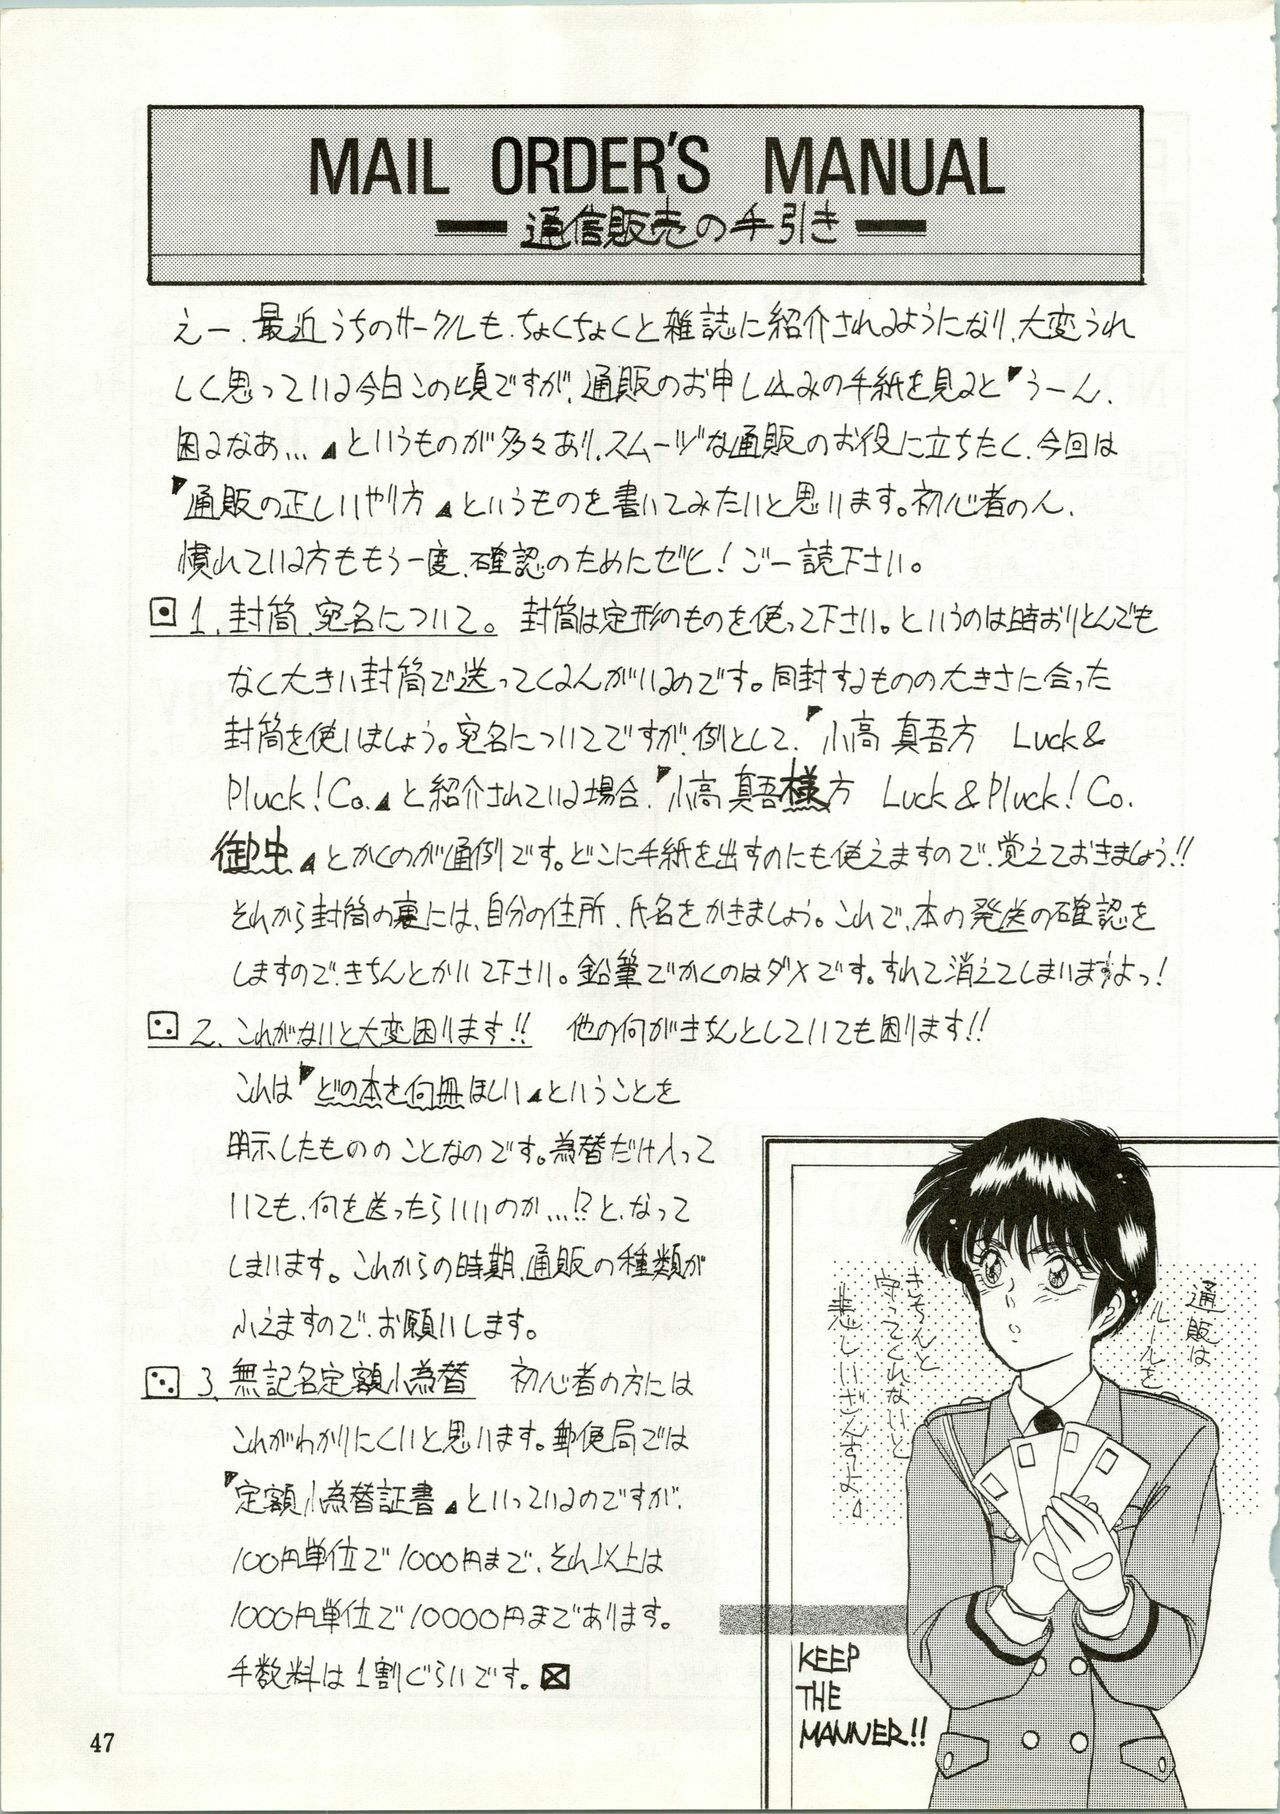 MAIL ORDER'S MANUAL
通信販売の手引き
えー、最近うちのサークルも、ちょくちょくと雑誌に紹介されるようになり、大変うれ
しく思っている今日この頃ですが、通販のお申し込みの手紙を見ると『うーん、
困るなあ…』というものが多々あり、スムーズな通販のお役に立ちたく、今回は
『通販の正しいやり方』というものを書いてみたいと思います。初心者の人、
慣れている方ももう一度、確認のためにゼヒ!ご一読下さい。
1. 封筒、宛名について。 封筒は定形のものを使って下さい。というのは時おりとんでも
なく大きい封筒で送ってくる人がいるのです。同封するものの大きさに合った
封筒を使いましょう。宛名についてですが、例として、『小高 真吾方 Luck&
Pluck!Co.』と紹介されている場合、『小高 真吾様方 Luck&Pluck!Co.
御中』とかくのが通例です。どこに手紙を出すのにも使えますので、覚えておきましょう!!
それから封筒の裏には、自分の住所、氏名をかきましょう。これで、本の発送の確認を
しますので、きちんとかいて下さい。鉛筆でかくのはダメです。すれて消えてしまいますよっ!
2. これがないと大変困ります!! 他の何がきちんとしていても困ります!!
これは『どの本を何冊ほしい』ということを
明示したもののことなのです。為替だけ入って
いても、何を送ったらいいのか…!?と、なって
しまいます。これからの時期、通販の種類が
ふえますので、お願いします。
3. 無記名定額小為替 初心者の方には
これがわかりにくいと思います。郵便局では
『定額小為替証書』といっているのですが、
100円単位で1000円まで、それ以上は
1000円単位で10000円まであります。
手数料は1割ぐらいです。
通販は
ルールを
きちんと
守ってくれないと
悲しいざんすーよ
KEEP
THE
MANNER!!
47